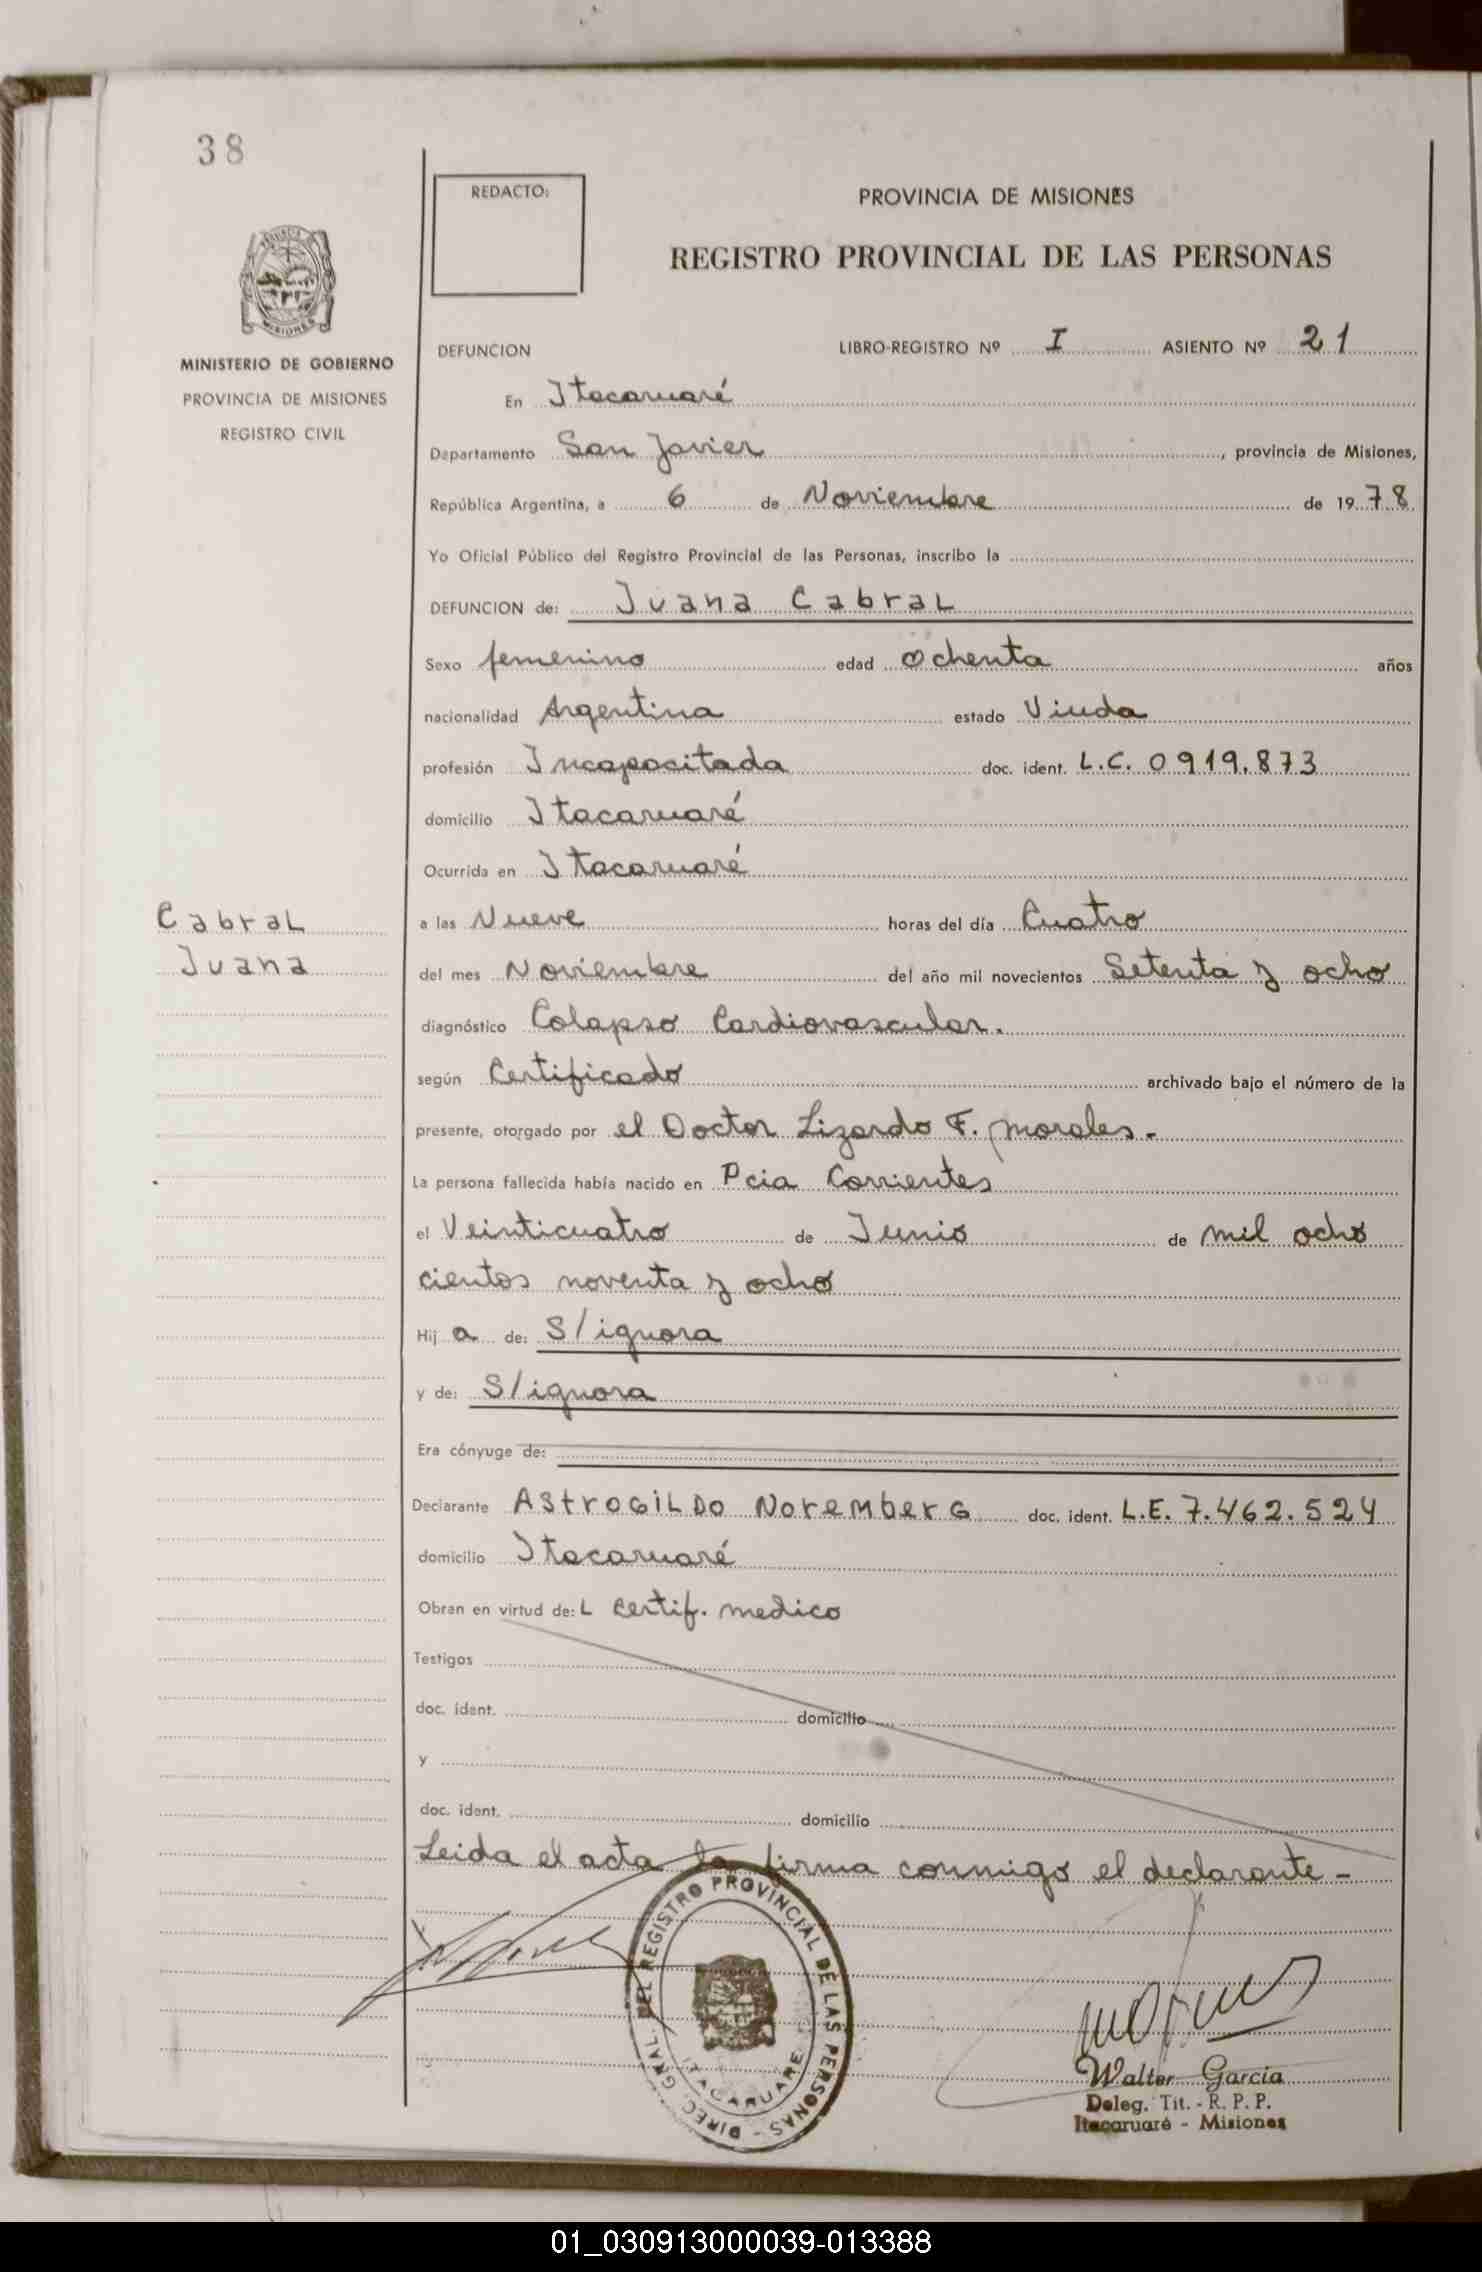 38
REDACTO:
PROVINCIA DE MISIONES
REGISTRO PROVINCIAL DE LAS PERSONAS
PROVINCIA
MISIONES
MINISTERIO DE GOBIERNO
PROVINCIA DE MISIONES
REGISTRO CIVIL
DEFUNCION LIBRO-REGISTRO Nº I ASIENTO Nº 21
En Itacaruaré
Departamento San Javier, provincia de Misiones,
República Argentina, a 6 de Noviembre de 1978
Yo Oficial Público del Registro Provincial de las Personas, inscribo la
DEFUNCION de: Juana Cabral
Sexo femenino edad ochenta años
nacionalidad Argentina estado Viuda
profesión Incapacitada doc. ident. L.C. 0919.873
domicilio Itacaruaré
Ocurrida en Itacaruaré
Cabral
Juana
a las Nueve horas del día Cuatro
del mes Noviembre del año mil novecientos Setenta y ocho
diagnóstico Colapso Cardiovascular.
según Certificado archivado bajo el número de la
presente, otorgado por el Doctor Lizardo F. Morales.-
La persona fallecida había nacido en Pcia Corrientes
el Veinticuatro de Junio de mil ocho
cientos noventa y ocho
Hij a de: S/ignora
y de: S/ignora
Era cónyuge de:
Declarante Astrogildo Noremberg doc. ident. L.E. 7.462.524
domicilio Itacaruaré
Obran en virtud de: L certif. medico
Testigos
doc. ident. domicilio
y
doc. ident. domicilio
Leida el acta la firma conmigo el declarante -
DIREC. GRAL. DEL REGISTRO PROVINCIAL DE LAS PERSONAS -
ITACARUARE
Walter Garcia
Deleg. Tit. - R. P. P.
Itacaruaré - Misiones
01_030913000039-013388